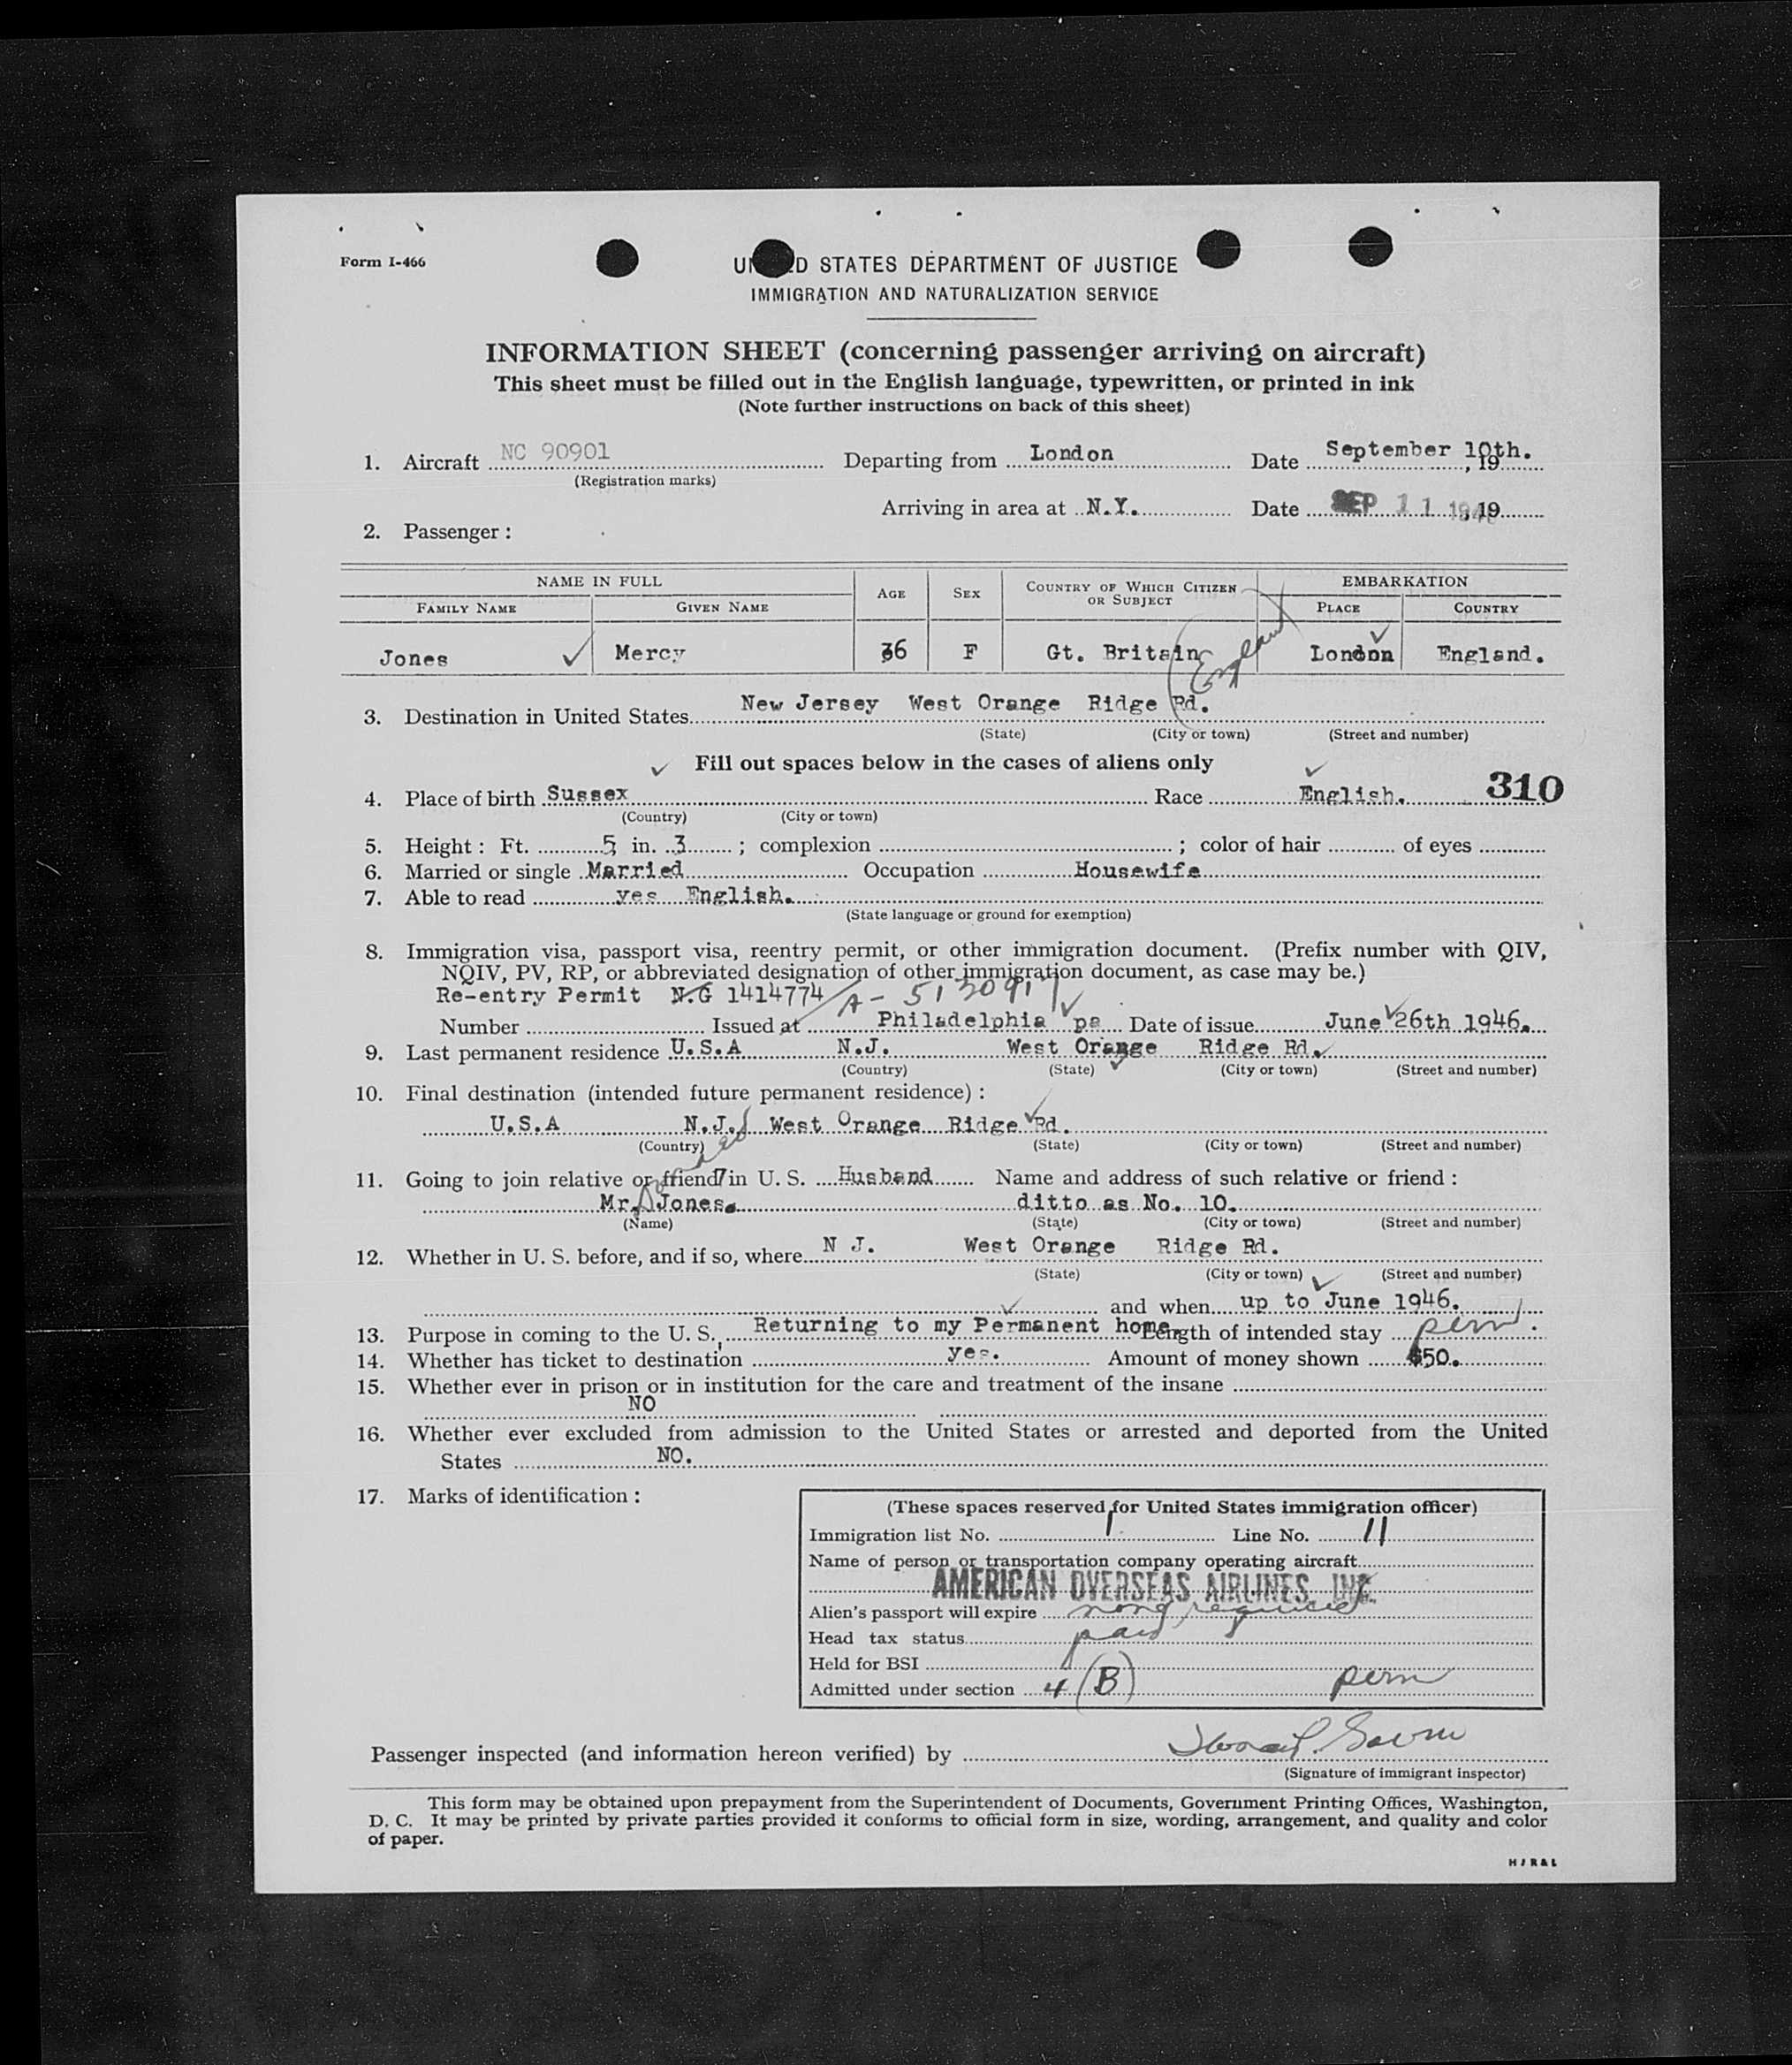 Form I-466
UNITED STATES DEPARTMENT OF JUSTICE
IMMIGRATION AND NATURALIZATION SERVICE
INFORMATION SHEET (concerning passenger arriving on aircraft)
This sheet must be filled out in the English language, typewritten, or printed in ink
(Note further instructions on back of this sheet)
1. Aircraft NC 90901 Departing from London Date September 10th. , 19
(Registration marks)
Arriving in area at N.Y. Date SEP 11 1946 , 19
2. Passenger :
NAME IN FULL AGE SEX COUNTRY OF WHICH CITIZEN OR SUBJECT EMBARKATION
FAMILY NAME GIVEN NAME PLACE COUNTRY
Jones Mercy 36 F Gt. Britain (England) London England.
3. Destination in United States New Jersey West Orange Ridge Rd.
(State) (City or town) (Street and number)
Fill out spaces below in the cases of aliens only
310
4. Place of birth Sussex Race English.
(Country) (City or town)
5. Height : Ft. 5 in. 3 ; complexion ; color of hair of eyes
6. Married or single Married Occupation Housewife
7. Able to read yes English.
(State language or ground for exemption)
8. Immigration visa, passport visa, reentry permit, or other immigration document. (Prefix number with QIV,
NQIV, PV, RP, or abbreviated designation of other immigration document, as case may be.)
Re-entry Permit N.G 1414774 A-
Number Issued at Philadelphia pa Date of issue June 26th 1946.
9. Last permanent residence U.S.A N.J. West Orange Ridge Rd.
(Country) (State) (City or town) (Street and number)
10. Final destination (intended future permanent residence) :
U.S.A N.J. West Orange Ridge Rd.
(Country) (State) (City or town) (Street and number)
11. Going to join relative or friend in U. S. Husband Name and address of such relative or friend :
Mr. Jones. ditto as No. 10.
(Name) (State) (City or town) (Street and number)
12. Whether in U. S. before, and if so, where N J. West Orange Ridge Rd.
(State) (City or town) (Street and number)
and when up to June 1946.
13. Purpose in coming to the U. S. Returning to my Permanent home. Length of intended stay perm.
14. Whether has ticket to destination yes. Amount of money shown $50.
15. Whether ever in prison or in institution for the care and treatment of the insane
NO
16. Whether ever excluded from admission to the United States or arrested and deported from the United
States NO.
17. Marks of identification :
(These spaces reserved for United States immigration officer)
Immigration list No. 1 Line No. 11
Name of person or transportation company operating aircraft
AMERICAN OVERSEAS AIRLINES, INC.
Alien's passport will expire none required
Head tax status paid
Held for BSI
Admitted under section 4 (B) perm
Passenger inspected (and information hereon verified) by
(Signature of immigrant inspector)
This form may be obtained upon prepayment from the Superintendent of Documents, Government Printing Offices, Washington,
D. C. It may be printed by private parties provided it conforms to official form in size, wording, arrangement, and quality and color
of paper.